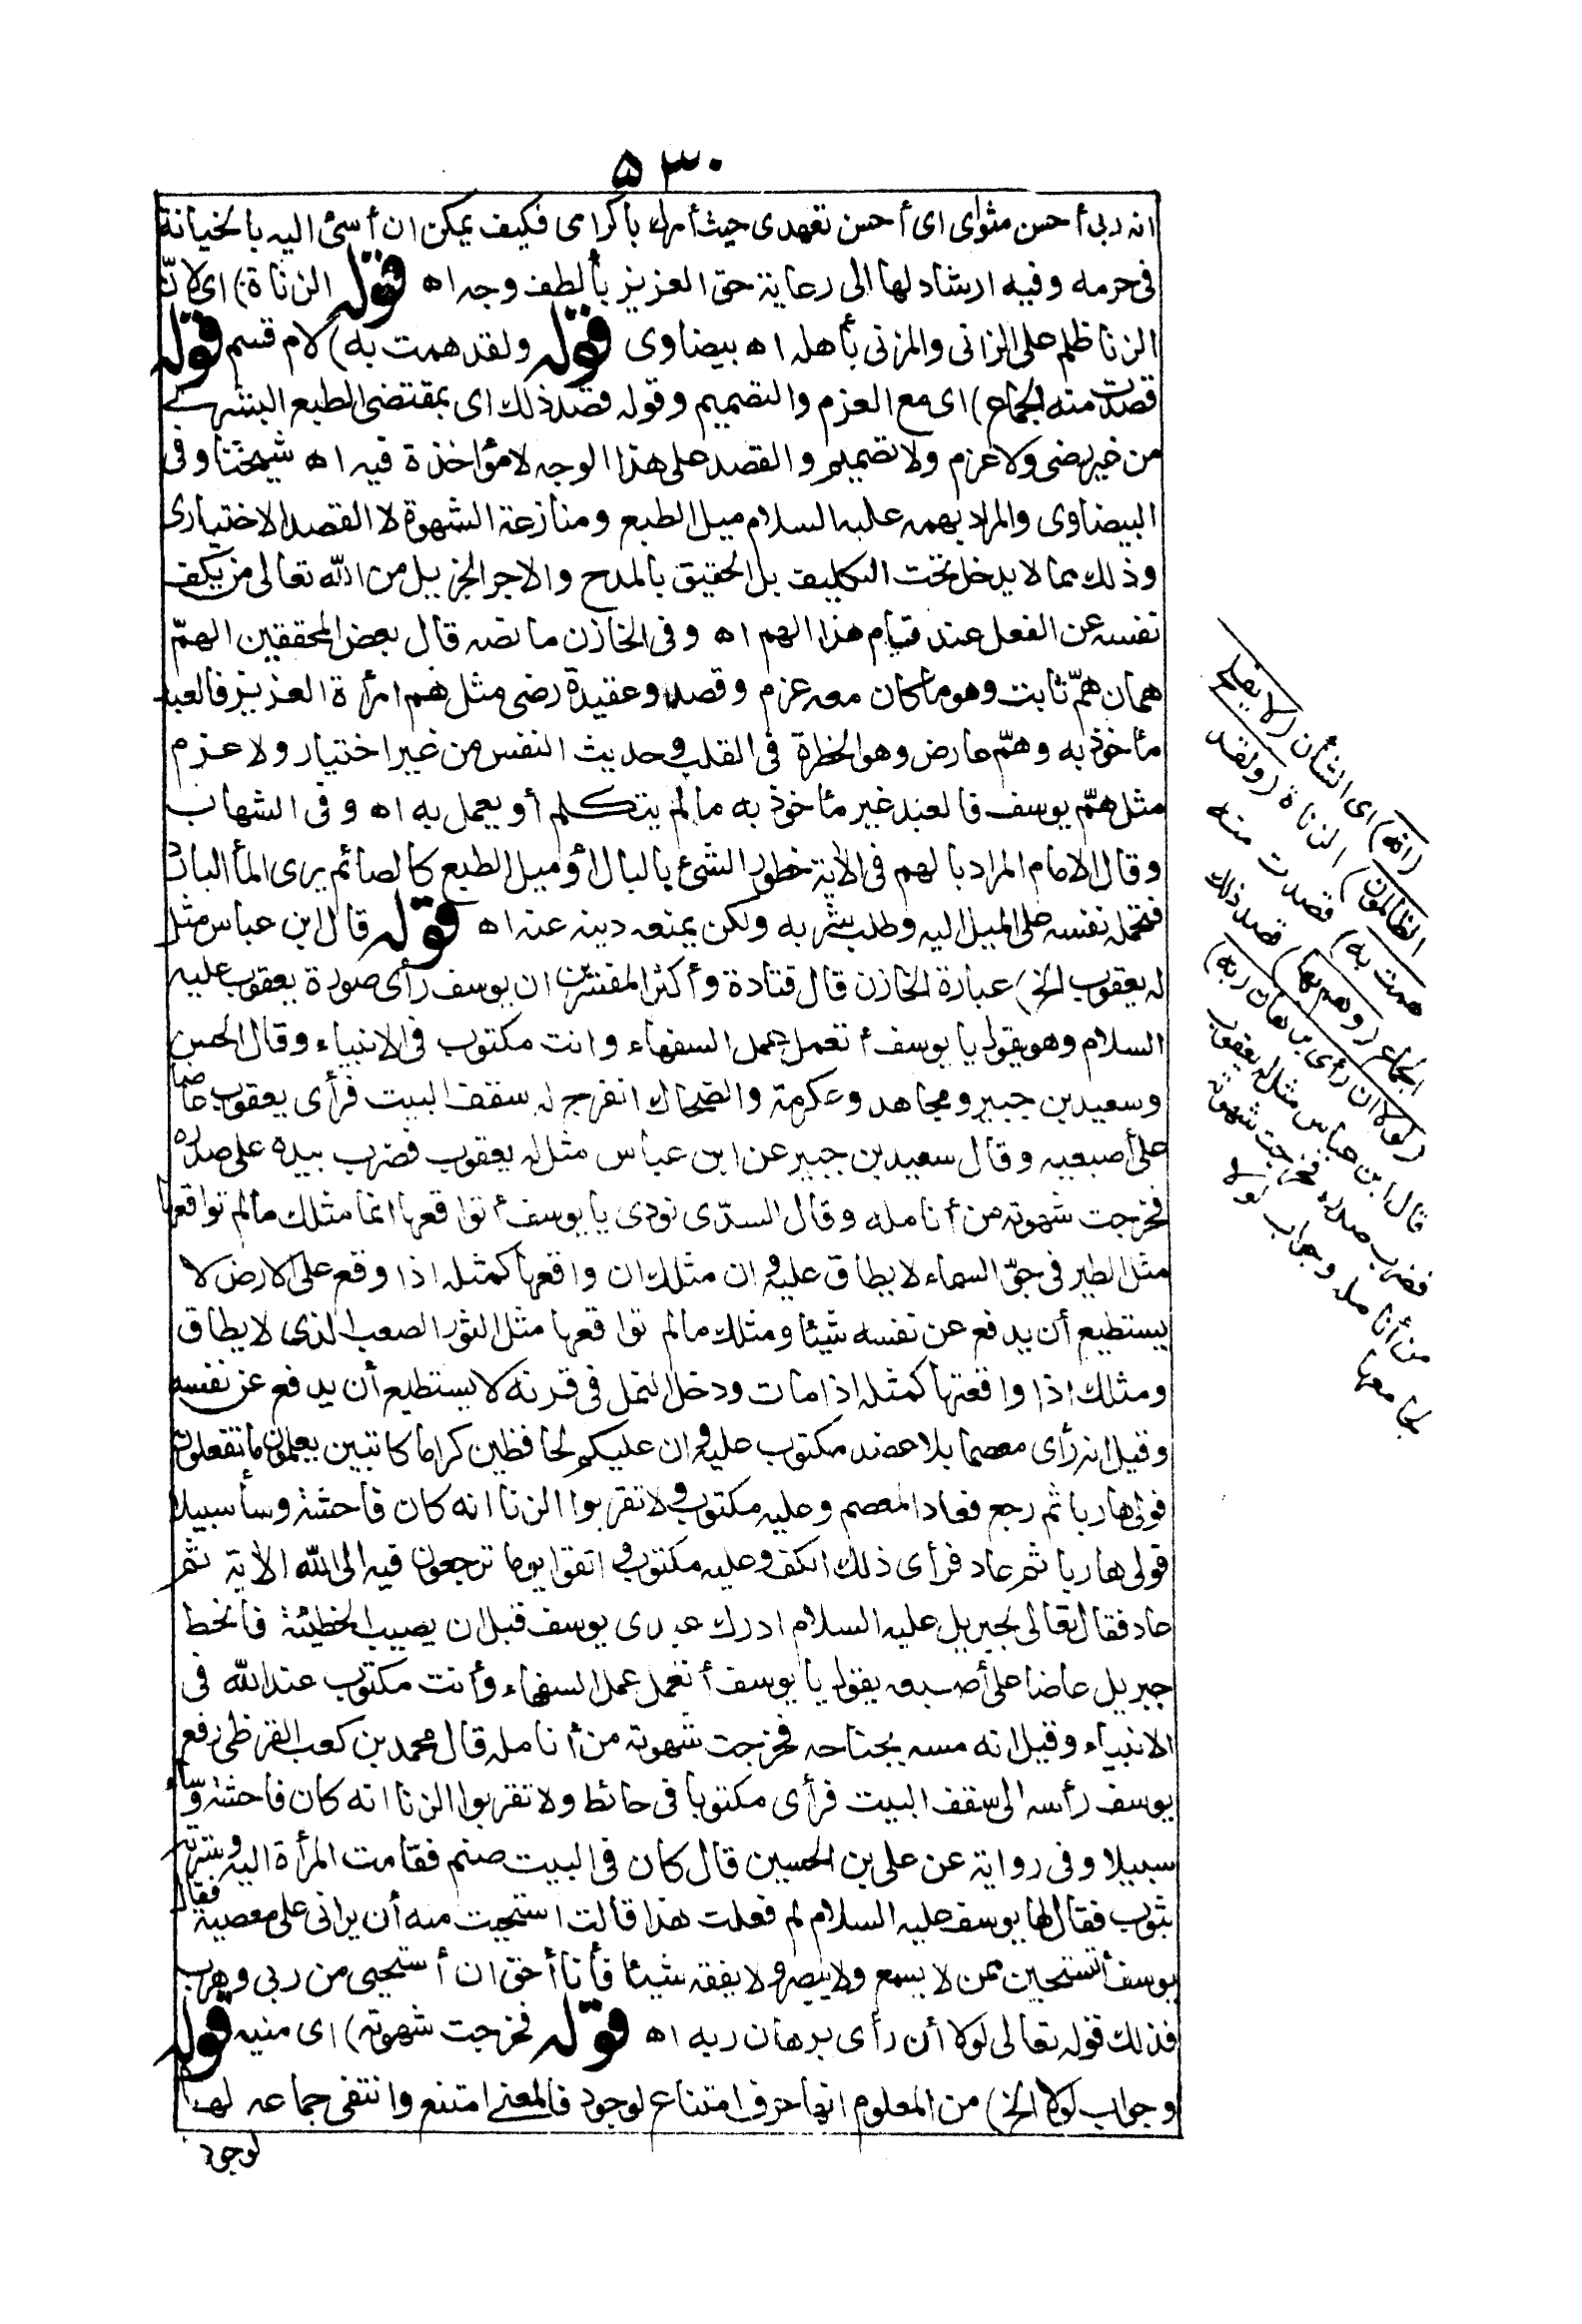 ٥٣٠
انه ربى أحسن مثواى اى أحسن تعهدى حيث أمرك باكرامى فكيف يمكن ان أسئ اليه بالخيانة
فى حرمه وفيه ارشاد لها الى رعاية حق العزيز بألطف وجه اه قوله الزناة) اى لان
الزنا ظلم على الزانى والمزنى بأهله اه بيضاوى قوله ولقد همت به) لام قسم قوله
قصدت منه الجماع) اى مع العزم والتصميم وقوله قصد ذلك اى بمقتضى الطبع البشرى
من غير رضى ولا عزم ولا تصميم والقصد على هذا الوجه لا مؤاخذة فيه اه شيخنا وفى
البيضاوى والمراد بهمه عليه السلام ميل الطبع ومنازعة الشهوة لا القصد الاختيارى
وذلك مما لا يدخل تحت التكليف بل الحقيق بالمدح والاجر الجزيل من الله تعالى من يكف
نفسه عن الفعل عند قيام هذا الهم اه وفى الخازن ما نصه قال بعض المحققين الهمّ
همان همّ ثابت وهو ما كان معه عزم وقصد وعقيدة رضى مثل هم امرأة العزيز فالعبد
مأخوذ به وهمّ عارض وهو الخطرة فى القلب وحديث النفس من غير اختيار ولا عزم
مثل همّ يوسف فالعبد غير مأخوذ به ما لم يتكلم أو يعمل به اه وفى الشهاب
وقال الامام المراد بالهم فى الآية خطور الشئ بالبال أو ميل الطبع كالصائم يرى الماء البارد
فتحمله نفسه على الميل اليه وطلب شربه ولكن يمنعه دينه عنه اه قوله قال ابن عباس مثل
له يعقوب الخ) عبارة الخازن قال قتادة وأكثر المفسرين ان يوسف رأى صورة يعقوب عليه
السلام وهو يقول يا يوسف أتعمل عمل السفهاء وانت مكتوب فى الانبياء وقال الحسن
وسعيد بن جبير ومجاهد وعكرمة والضحاك انفرج له سقف البيت فرأى يعقوب عاضا
على أصبعيه وقال سعيد بن جبير عن ابن عباس مثل له يعقوب فضرب بيده على صدره
فخرجت شهوته من أنامله وقال السدّى نودى يا يوسف أتواقعها انما مثلك ما لم تواقعها
مثل الطير فى جوّ السماء لا يطاق عليه وان مثلك ان واقعها كمثله اذا وقع على الارض لا
يستطيع أن يدفع عن نفسه شيئا ومثلك ما لم تواقعها مثل الثور الصعب الذى لا يطاق
ومثلك اذا واقعتها كمثله اذا مات ودخل النمل فى قرنه لا يستطيع أن يدفع عن نفسه
وقيل انه رأى معصما بلا عضد مكتوب عليه وان عليكم لحافظين كراما كاتبين يعلمون ما تفعلون
فولى هاربا ثم رجع فعاد المعصم وعليه مكتوب ولا تقربوا الزنا انه كان فاحشة وساء سبيلا
فولى هاربا ثم عاد فرأى ذلك الكف وعليه مكتوب واتقوا يوما ترجعون فيه الى الله الآية ثم
عاد فقال تعالى لجبريل عليه السلام ادرك عبدى يوسف قبل ان يصيب الخطيئة فانحط
جبريل عاضا على أصبعه يقول يا يوسف أتعمل عمل السفهاء وأنت مكتوب عند الله فى
الانبياء وقيل انه مسه بجناحه فخرجت شهوته من أنامله قال محمد بن كعب القرظى رفع
يوسف رأسه الى سقف البيت فرأى مكتوبا فى حائط ولا تقربوا الزنا انه كان فاحشة وساء
سبيلا وفى رواية عن على بن الحسين قال كان فى البيت صنم فقامت المرأة اليه وسترته
بثوب فقال لها يوسف عليه السلام لم فعلت هذا قالت استحيت منه أن يرانى على معصية فقال
يوسف أتستحيين ممن لا يسمع ولا يبصر ولا يفقه شيئا فأنا أحق ان أستحيى من ربى وهرب
فذلك قوله تعالى لولا أن رأى برهان ربه اه قوله فخرجت شهوته) اى منيه قوله
وجواب لولا الخ) من المعلوم انها حرف امتناع لوجود فالمعنى امتنع وانتفى جماعه لها
لوجود
(انه) اى الشأن (لا يفلح
الظالمون) الزناة (ولقد
همت به) قصدت منه
الجماع (وهم بها) قصد ذلك
(لولا ان رأى برهان ربه)
قال ابن عباس مثل له يعقوب
فضرب صدره فخرجت شهوته
من أنامله وجواب لولا
لجامعها